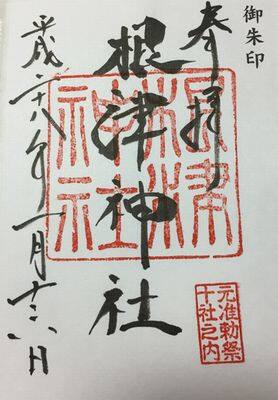 御朱印
奉拝
根津神社
平成二十八年一月十六日
根津
神社
元准勅祭
十社之内